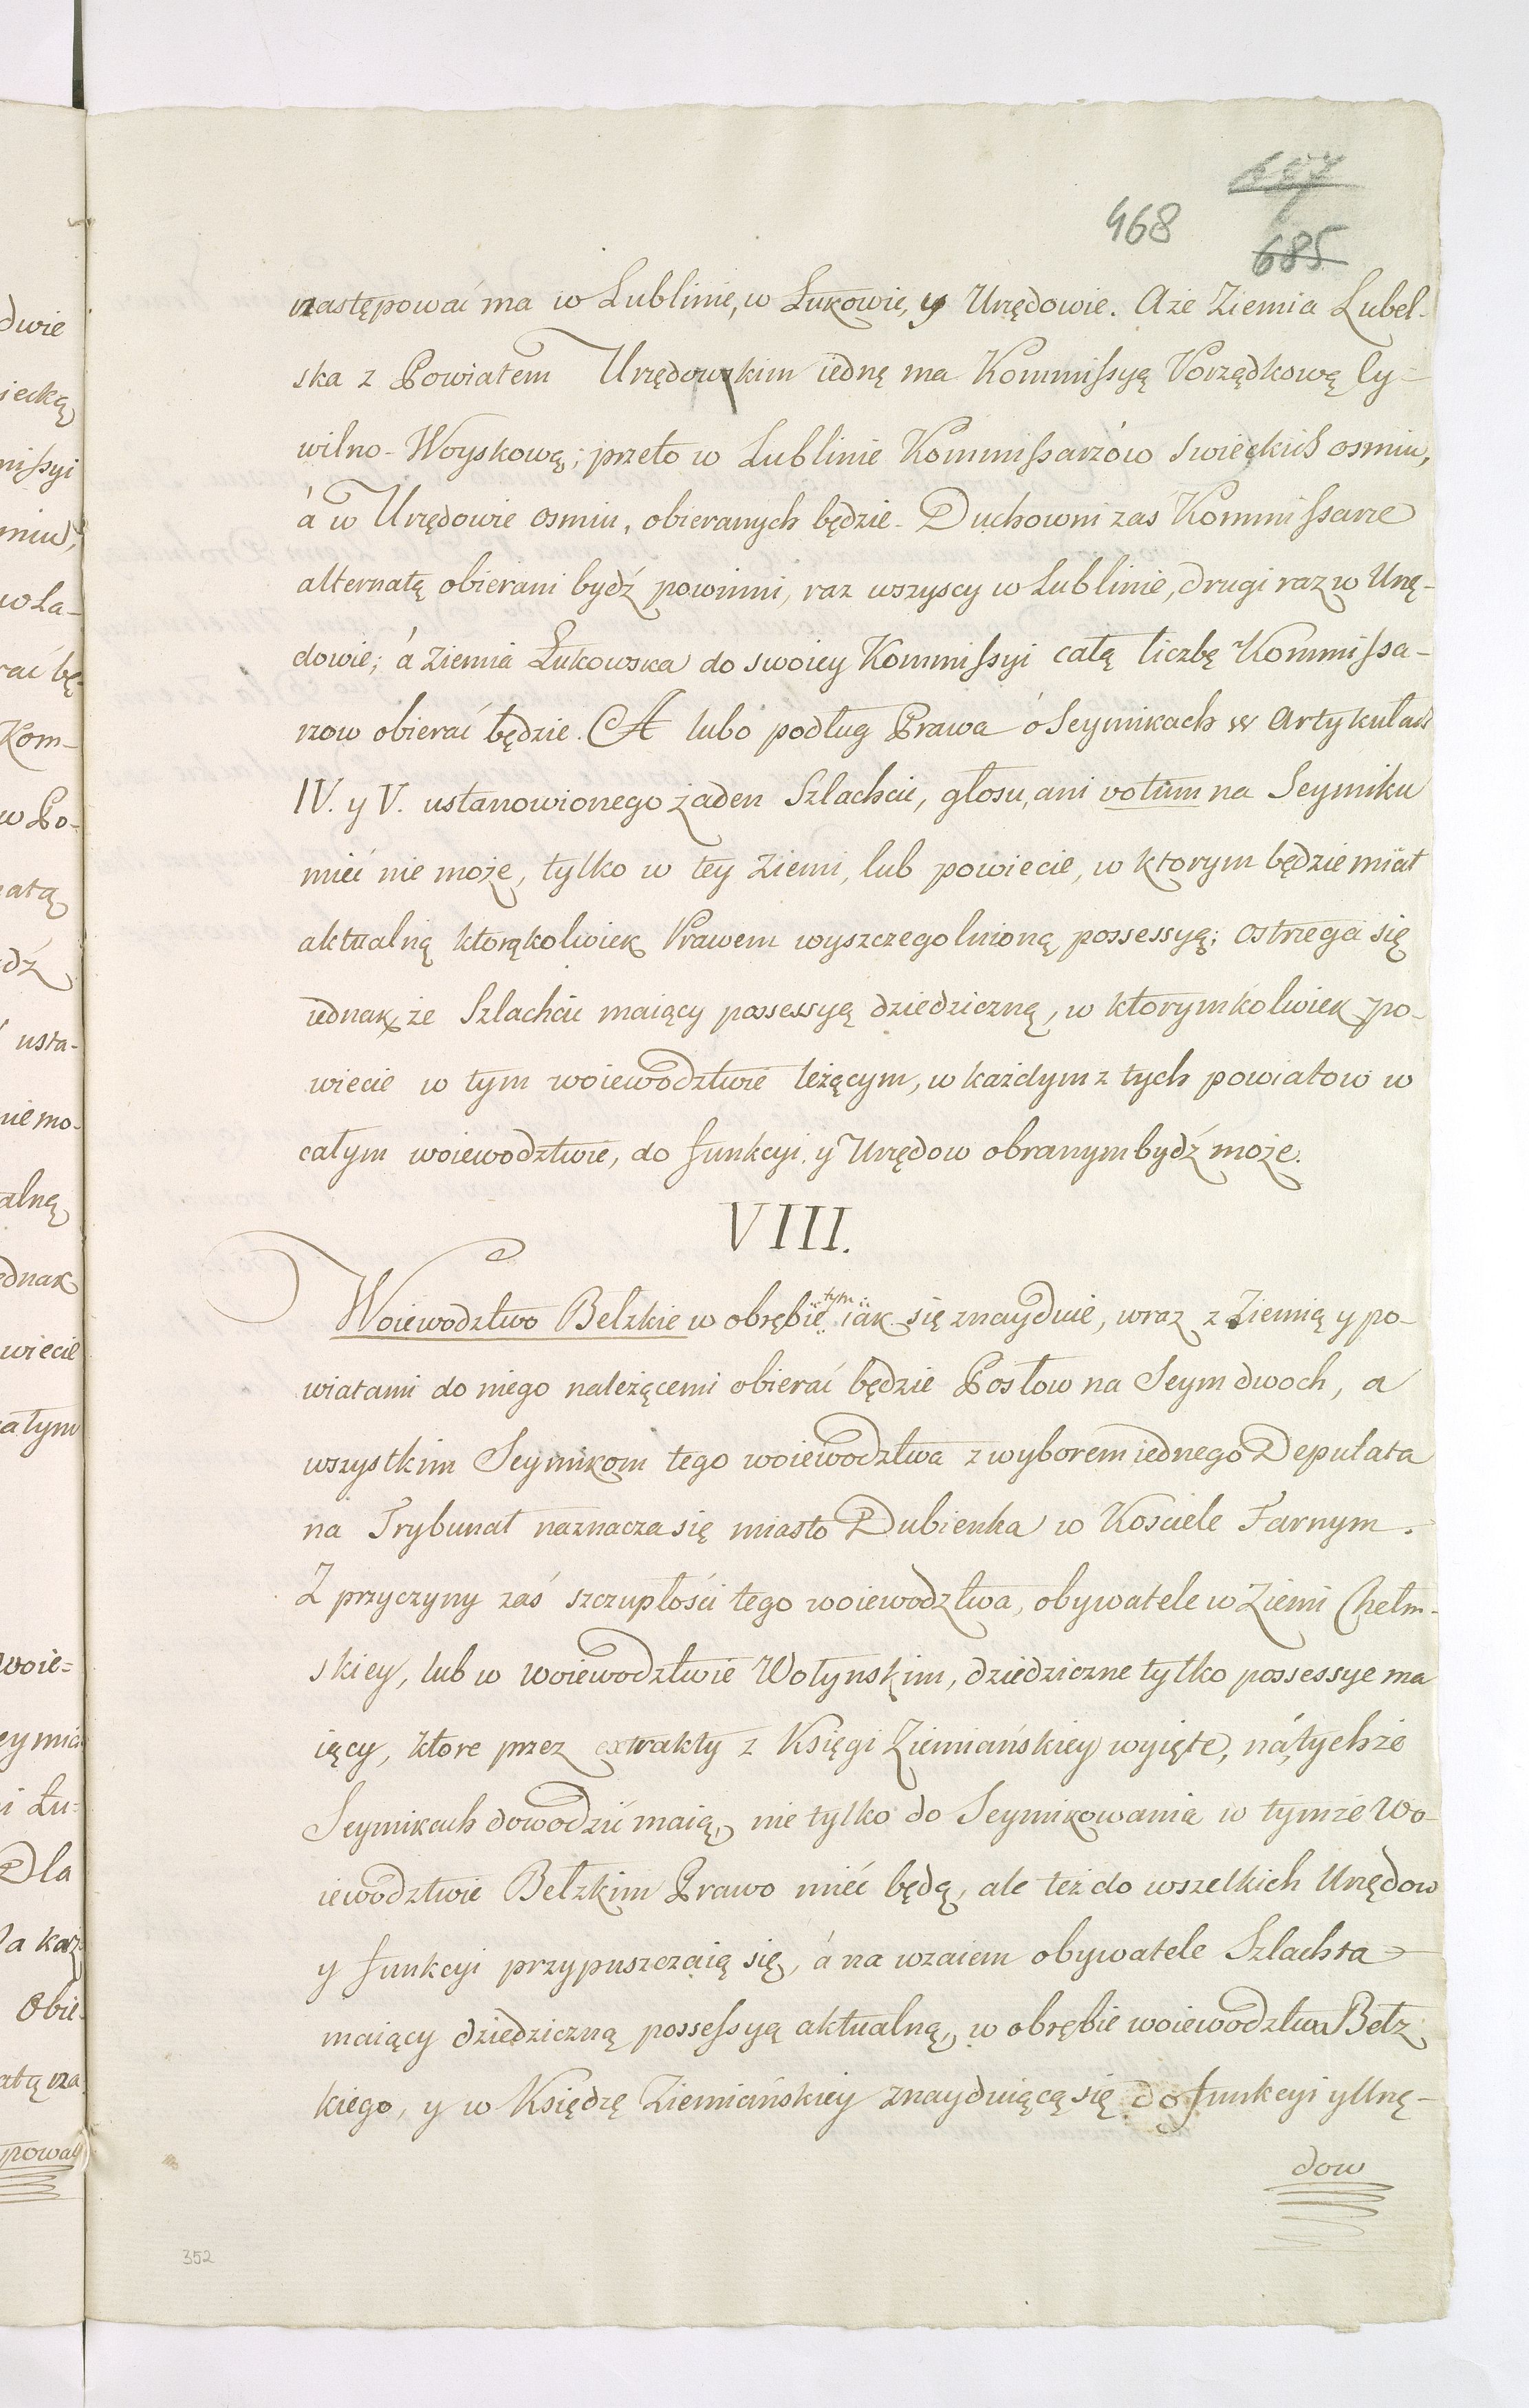 468
685
następować ma w Lublinie, w Łukowie, y Urzędowie. Aże Ziemia Lubel-
ska z Powiatem Urzędowskim iednę ma Kommissyą Porządkową Cy-
wilno-Woyskową; przeto w Lublinie Kommissarzów swieckich osmiu,
á w Urzędowie osmiu, obieranych będzie. Duchowni zas Kommissarze
alternatą obierani bydź powinni, raz wszyscy w Lublinie, drugi raz w Urzę-
dowie; á Ziemia Łukowska do swoiey Kommissyi całą liczbę Kommissa-
rzow obierać będzie. A lubo podług Prawa ó Seymikach w Artykułach
IV. y V. ustanowionego żaden Szlachcic, głosu, ani votum na Seymiku
mieć nie może, tylko w tey Ziemi, lub powiecie, w ktorym będzie miał
aktualną ktorąkolwiek Prawem wyszczegolnioną possessyą; ostrzega się
iednak że Szlachcic maiący possessyą dziedziczną, w ktorymkolwiek po-
wiecie w tym woiewodztwie leżącym, w każdym z tych powiatow w
całym woiewodztwie, do funkcyi y Urzędow obranym bydź może.
VIII.
tym
Woiewodztwo Belzkie w obrębie iak się znayduie, wraz z Ziemią y po-
wiatami do niego należącemi obierać będzie Posłow na Seym dwoch, a
wszystkim Seymikom tego woiewodztwa z wyborem iednego Deputata
na Trybunał naznacza się miasto Dubienka w Kosciele Farnym.
Z przyczyny zaś szczupłości tego woiewodztwa, obywatele w Ziemi Chełm-
skiey, lub w woiewodztwie Wołynskim, dziedziczne tylko possessye ma
iący, ktore przez extrakty z Księgi Ziemiańskiey wyięte, ná tychże
Seymikach dowodzić maią, nie tylko do Seymikowania w tymże Wo-
iewodztwie Bełzkim Prawo mieć będą, ale też do wszelkich Urzędow
y funkcyi przypuszczaią się, á na wzaiem obywatele Szlachta
maiący dziedziczną possessyą aktualną, w obrębie woiewodztwa Bełz
kiego, y w Księdze Ziemiańskiey znayduiącą się do funkcyi y Urzę-
dow
352
dwie
iecką
missyi
miu,
w Ła-
rać bę-
Kom-
w Po-
natą
ydź
usta-
nie mo-
alną
ednak
wiecie
ałym
woie=
eymic
i Łu=
Dla
la każ
Obie-
atą na
powac